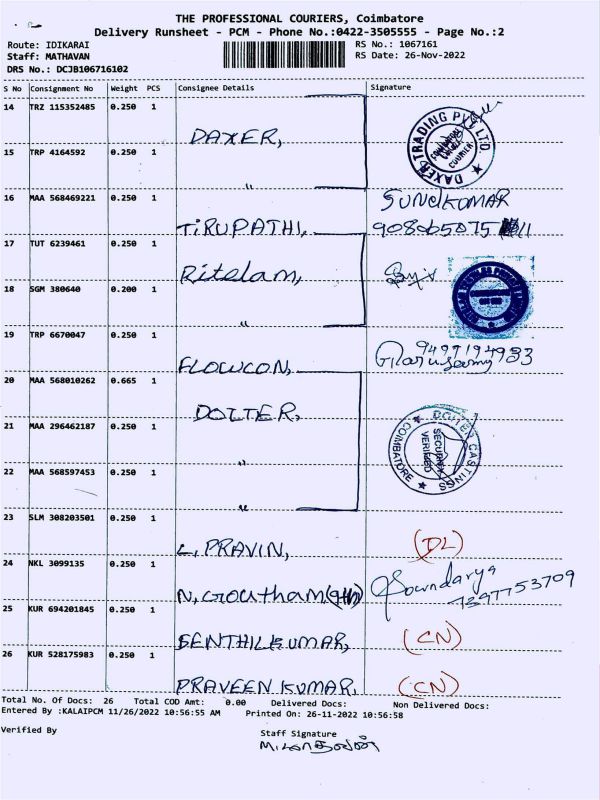 THE PROFESSIONAL COURIERS, Coimbatore
Delivery Runsheet - PCM - Phone No.:0422-3505555 - Page No.:2
Route: IDIKARAI RS No.: 1067161
Staff: MATHAVAN RS Date: 26-Nov-2022
DRS No.: DCJB106716102
S No Consignment No Weight PCS Consignee Details Signature
14 TRZ 115352485 0.250 1
DAXER,
DAXER TRADING PVT LTD. COURIER
15 TRP 4164592 0.250 1
"
16 MAA 568469221 0.250 1 SUNdKUMAR
TiRUPATHI,
17 TUT 6239461 0.250 1
Ritelam,
18 SGM 380640 0.200 1
"
19 TRP 6670047 0.250 1
FLOWCON, 9497194933
20 MAA 568010262 0.665 1
DOLTER,
21 MAA 296462187 0.250 1
"
CASTINGS COIMBATORE SECURITY VERIFIED
22 MAA 568597453 0.250 1
"
23 SLM 308203501 0.250 1
L. PRAVIN, (DL)
24 NKL 3099135 0.250 1 Soundarya
N. Goutham(9th) 7397753709
25 KUR 694201845 0.250 1
SENTHILKUMAR, (CN)
26 KUR 528175983 0.250 1
PRAVEEN KUMAR, (CN)
Total No. Of Docs: 26 Total COD Amt: 0.00 Delivered Docs: Non Delivered Docs:
Entered By :KALAIPCM 11/26/2022 10:56:55 AM Printed On: 26-11-2022 10:56:58
Verified By Staff Signature